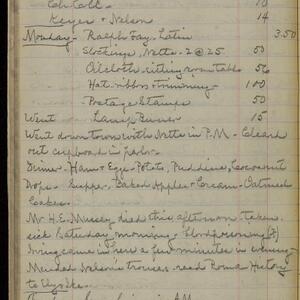 10
Keyes & Nelson 14
Monday - Ralph Fay. Latin 3.50
Stockings, Netta - 2 @ 25 50
Oilcloth sitting room table 56
Hat. ribbon & trimming - 100
Postage Stamps 50
Went Lamp Burner 15
Went down town with Netta in P.M. - Cleaned
out cupboard in
Dinner - Ham & Eggs - Potato, Pudding, Cocoanut
Drops - Supper. Baked Apples & Cream - Oatmeal
Cakes.
Mr. H.E. Mussey died this afternoon taken
sick Saturday morning - bloodpoisoning (?)
Irving came in here a few minutes in evening -
Mended Nelson's trousers, read Roma History
to